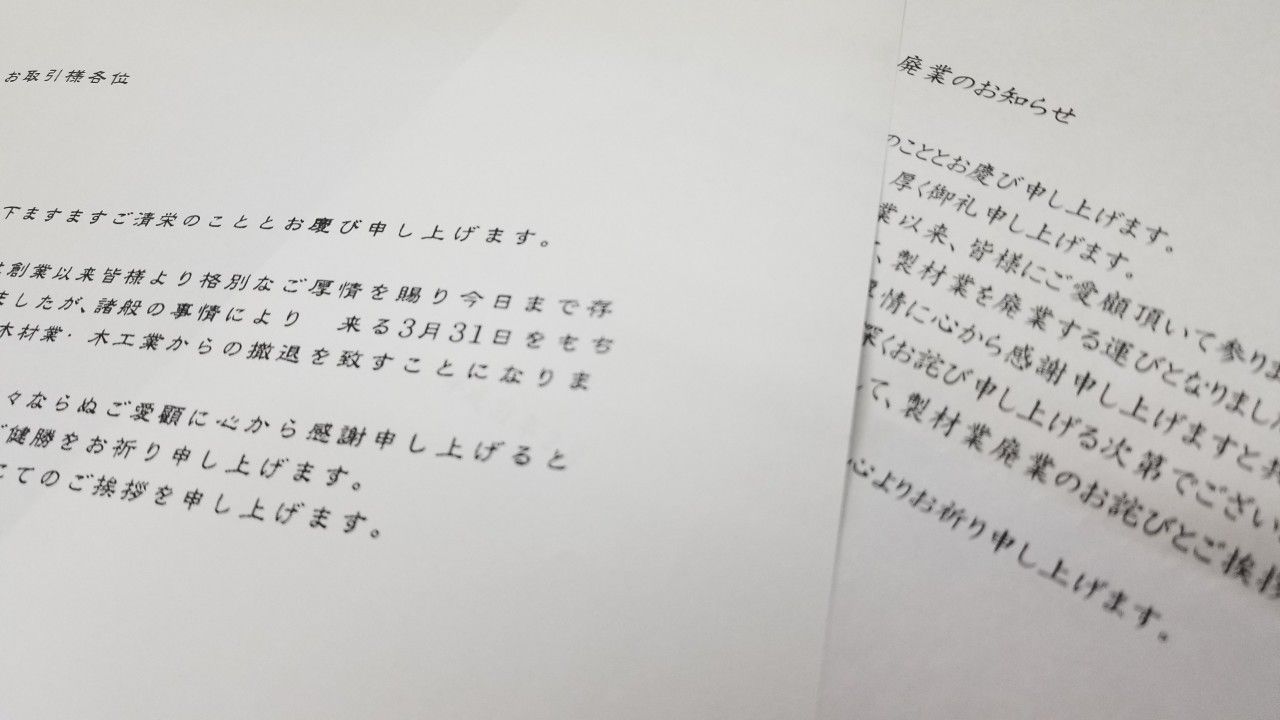 お取引様各位
下ますますご清栄のこととお慶び申し上げます。
創業以来皆様より格別なご厚情を賜り今日まで存
ましたが、諸般の事情により 来る3月31日をもち
木材業・木工業からの撤退を致すことになりま
々ならぬご愛顧に心から感謝申し上げると
ご健勝をお祈り申し上げます。
にてのご挨拶を申し上げます。
廃業のお知らせ
のこととお慶び申し上げます。
厚く御礼申し上げます。
業以来、皆様にご愛顧頂いて参りま
、製材業を廃業する運びとなりました
情に心から感謝申し上げますと共
深くお詫び申し上げる次第でござい
て、製材業廃業のお詫びとご挨拶
心よりお祈り申し上げます。